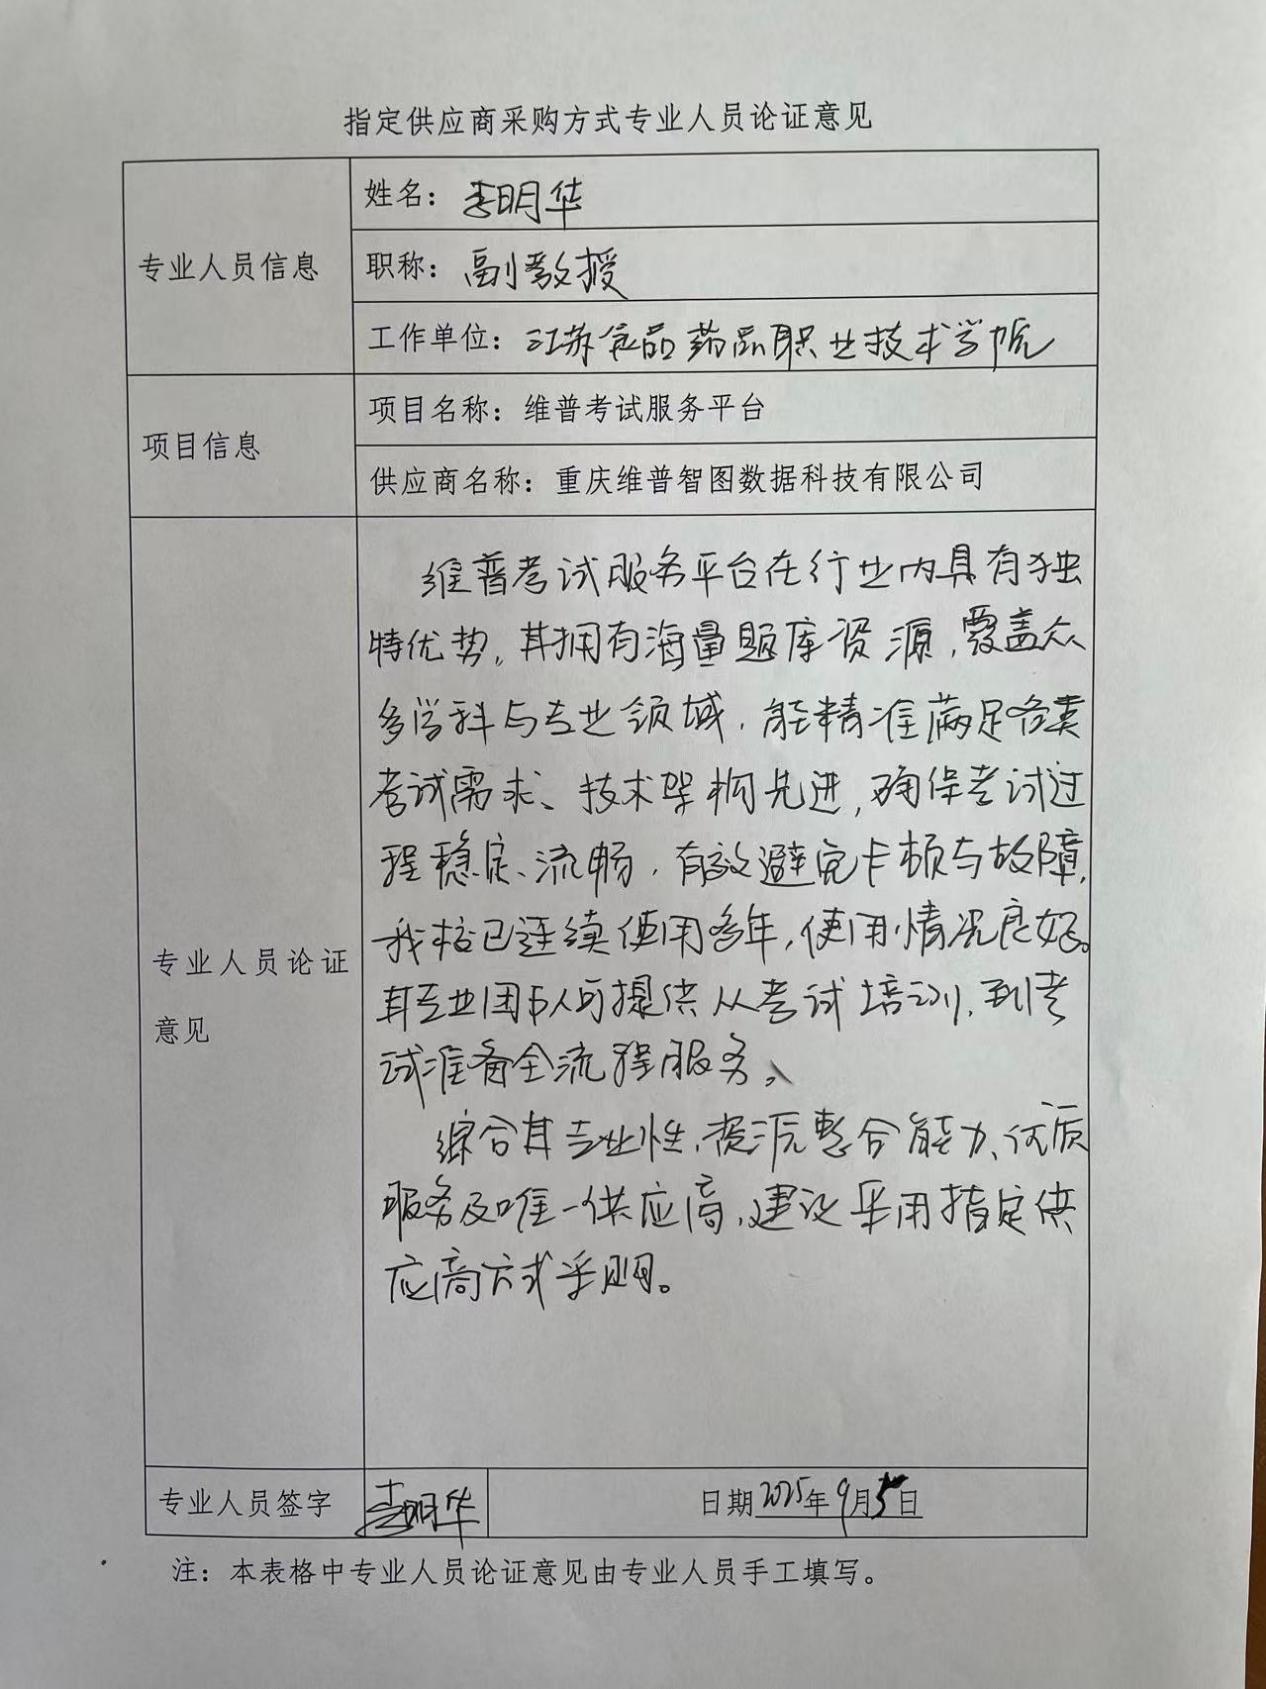 指定供应商采购方式专业人员论证意见
专业人员信息
姓名：李明华
职称：副教授
工作单位：江苏食品药品职业技术学院
项目信息
项目名称：维普考试服务平台
供应商名称：重庆维普智图数据科技有限公司
专业人员论证
意见
维普考试服务平台在行业内具有独
特优势。其拥有海量题库资源，覆盖众
多学科与专业领域，能精准满足各类
考试需求、技术架构先进，确保考试过
程稳定、流畅，有效避免卡顿与故障，
我校已连续使用多年，使用情况良好。
其专业团队可提供从考试培训，到考
试准备全流程服务。
综合其专业性，资源整合能力、优质
服务及唯一供应商，建议采用指定供
应商方式采购。
专业人员签字
李明华
日期2025年9月5日
注：本表格中专业人员论证意见由专业人员手工填写。